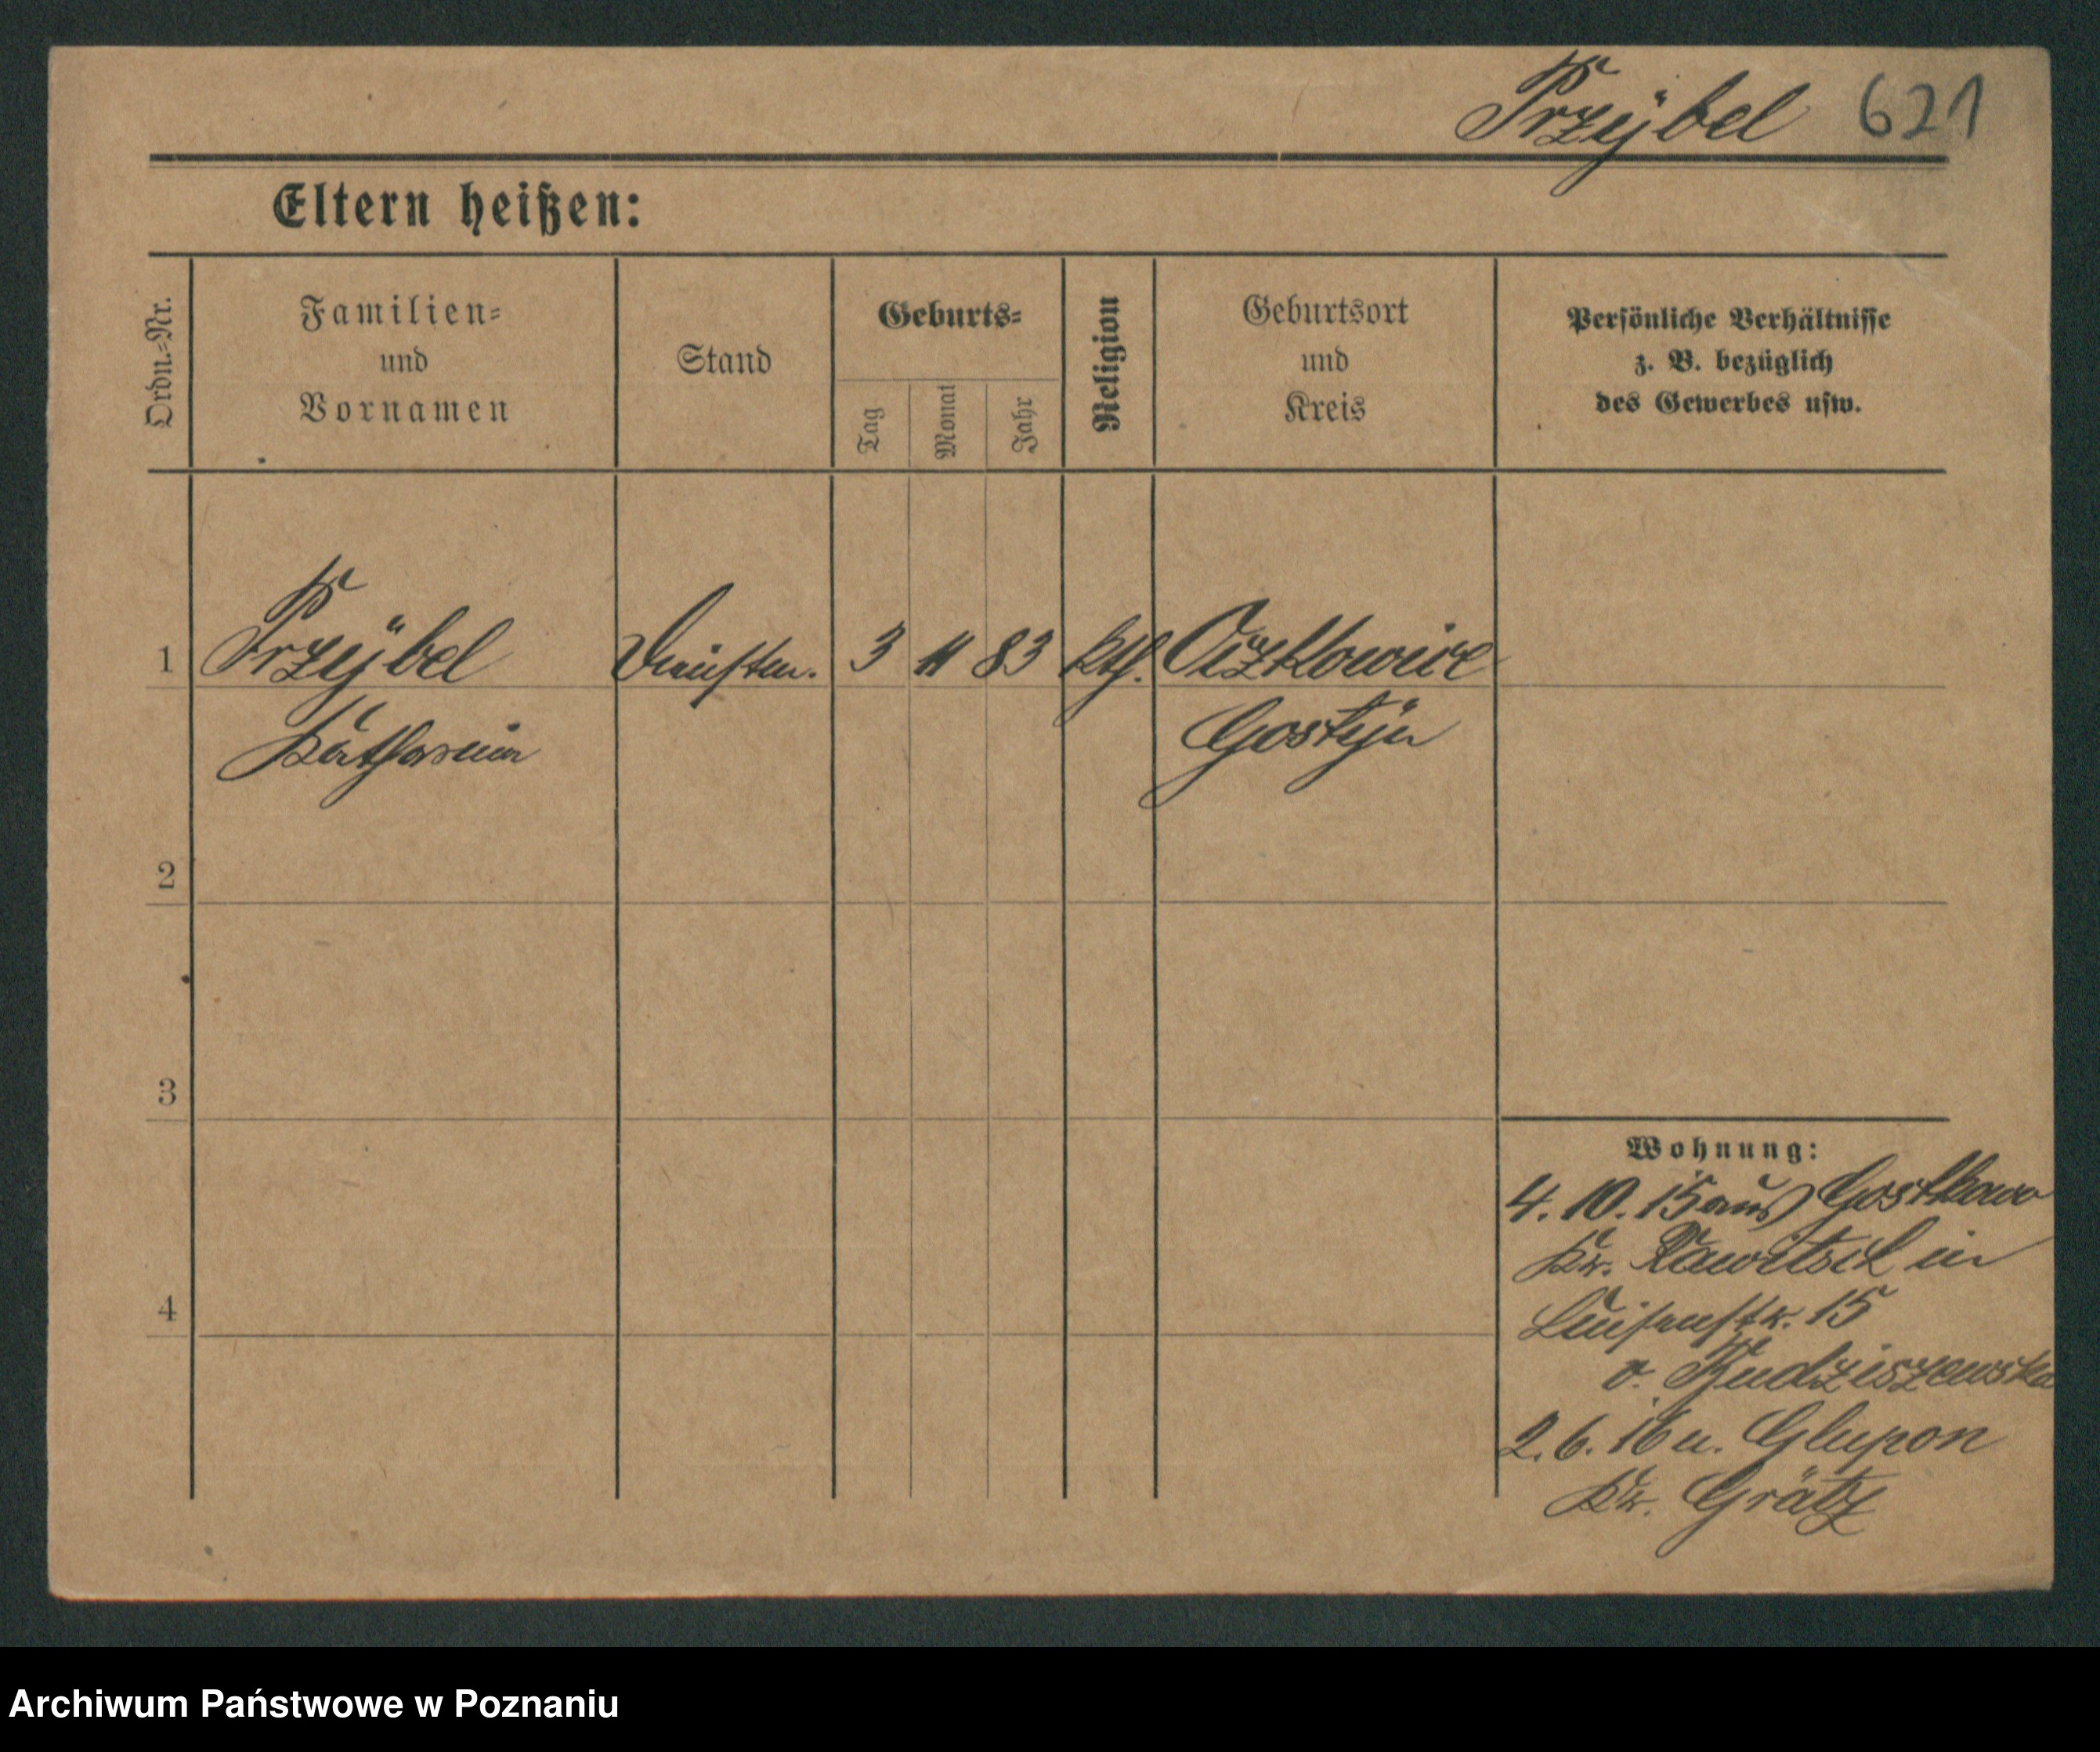 Przÿbel 621
Eltern heißen:
Ordn.-Nr.
Familien-
und
Vornamen
Stand
Geburts-
Tag
Monat
Jahr
Religion
Geburtsort
und
Kreis
Persönliche Verhältnisse
z. B. bezüglich
des Gewerbes usw.
1 Przÿbel 3 11 83 kth.
Katharina Gostÿn
2
3
4
Wohnung:
4. 10. 15 aus Gostkowo
Kr. Rawitsch in
Luisenstr. 15
v. Rudziszewska
2. 6. 16 n. Glupon
Kr. Grätz
Archiwum Państwowe w Poznaniu